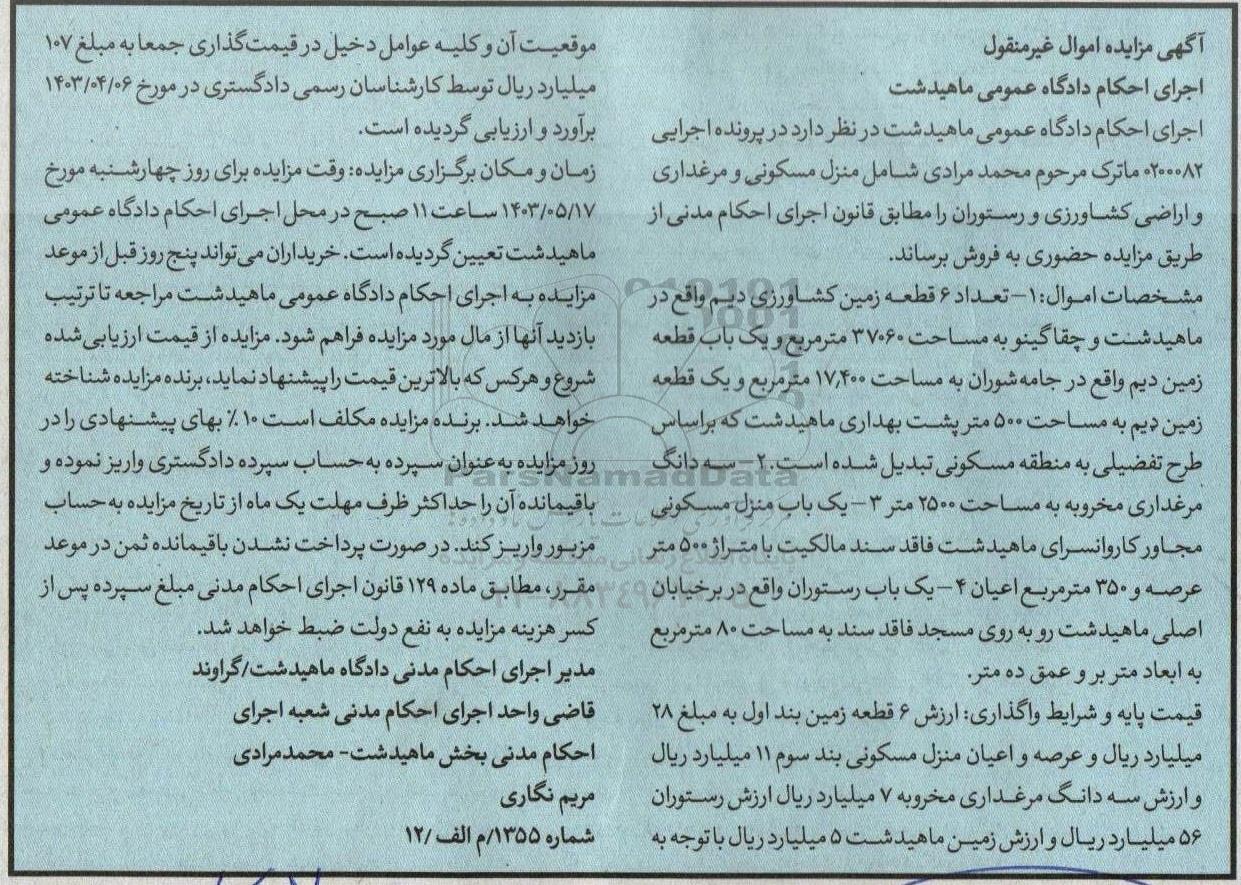 آگهی مزایده اموال غیرمنقول
اجرای احکام دادگاه عمومی ماهیدشت
اجرای احکام دادگاه عمومی ماهیدشت در نظر دارد در پرونده اجرایی
۰۲۰۰۰۸۲ ماترک مرحوم محمد مرادی شامل منزل مسکونی و مرغداری
و اراضی کشاورزی و رستوران را مطابق قانون اجرای احکام مدنی از
طریق مزایده حضوری به فروش برساند.
مشخصات اموال: ۱- تعداد ۶ قطعه زمین کشاورزی دیم واقع در
ماهیدشت و چقاگینو به مساحت ۳۷۰۶۰ مترمربع و یک باب قطعه
زمین دیم واقع در جامه‌شوران به مساحت ۱۷,۴۰۰ مترمربع و یک قطعه
زمین دیم به مساحت ۵۰۰ متر پشت بهداری ماهیدشت که براساس
طرح تفضیلی به منطقه مسکونی تبدیل شده است. ۲- سه دانگ
مرغداری مخروبه به مساحت ۲۵۰۰ متر ۳- یک باب منزل مسکونی
مجاور کاروانسرای ماهیدشت فاقد سند مالکیت با متراژ ۵۰۰ متر
عرصه و ۳۵۰ مترمربع اعیان ۴- یک باب رستوران واقع در برخیابان
اصلی ماهیدشت رو به روی مسجد فاقد سند به مساحت ۸۰ مترمربع
به ابعاد متر بر و عمق ده متر.
قیمت پایه و شرایط واگذاری: ارزش ۶ قطعه زمین بند اول به مبلغ ۲۸
میلیارد ریال و عرصه و اعیان منزل مسکونی بند سوم ۱۱ میلیارد ریال
و ارزش سه دانگ مرغداری مخروبه ۷ میلیارد ریال ارزش رستوران
۵۶ میلیارد ریال و ارزش زمین ماهیدشت ۵ میلیارد ریال با توجه به
موقعیت آن و کلیه عوامل دخیل در قیمت‌گذاری جمعا به مبلغ ۱۰۷
میلیارد ریال توسط کارشناسان رسمی دادگستری در مورخ ۱۴۰۳/۰۴/۰۶
برآورد و ارزیابی گردیده است.
زمان و مکان برگزاری مزایده: وقت مزایده برای روز چهارشنبه مورخ
۱۴۰۳/۰۵/۱۷ ساعت ۱۱ صبح در محل اجرای احکام دادگاه عمومی
ماهیدشت تعیین گردیده است. خریداران می‌تواند پنج روز قبل از موعد
مزایده به اجرای احکام دادگاه عمومی ماهیدشت مراجعه تا ترتیب
بازدید آنها از مال مورد مزایده فراهم شود. مزایده از قیمت ارزیابی شده
شروع و هرکس که بالاترین قیمت را پیشنهاد نماید، برنده مزایده شناخته
خواهد شد. برنده مزایده مکلف است ۱۰٪ بهای پیشنهادی را در
روز مزایده به عنوان سپرده به حساب سپرده دادگستری واریز نموده و
باقیمانده آن را حداکثر ظرف مهلت یک ماه از تاریخ مزایده به حساب
مزبور واریز کند. در صورت پرداخت نشدن باقیمانده ثمن در موعد
مقرر، مطابق ماده ۱۲۹ قانون اجرای احکام مدنی مبلغ سپرده پس از
کسر هزینه مزایده به نفع دولت ضبط خواهد شد.
مدیر اجرای احکام مدنی دادگاه ماهیدشت/گراوند
قاضی واحد اجرای احکام مدنی شعبه اجرای
احکام مدنی بخش ماهیدشت- محمدمرادی
مریم نگاری
شماره ۱۳۵۵/م الف /۱۲
ParsNamadData